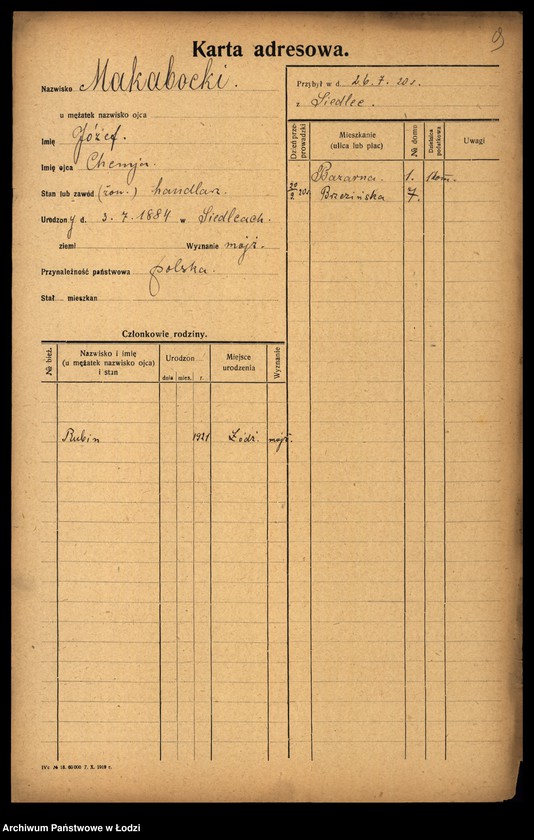 Karta adresowa.
Nazwisko Makabocki.
u mężatek nazwisko ojca
Imię Józef.
Imię ojca
Stan lub zawód (żon.) handlarz.
Urodzony d. 3.7.1884 w Siedlcach.
ziemi Wyznanie mojż.
Przynależność państwowa polska.
Stał. mieszkan
Przybył w d. 26.7.20 r.
z Siedlec.
Dzień przeprowadzki
Mieszkanie
(ulica lub plac)
№ domu
Dzielnica podatkowa
Uwagi
Bazarna. 1.
20 r. Brzezińska 7.
Członkowie rodziny.
№ bież.
Nazwisko i imię
(u mężatek nazwisko ojca)
i stan
Urodzon
dnia mies. r.
Miejsce
urodzenia
Wyznanie
Rubin 1921 Łódź. mojż.
IVz № 18. 60 000 7. X. 1918 r.
Archiwum Państwowe w Łodzi